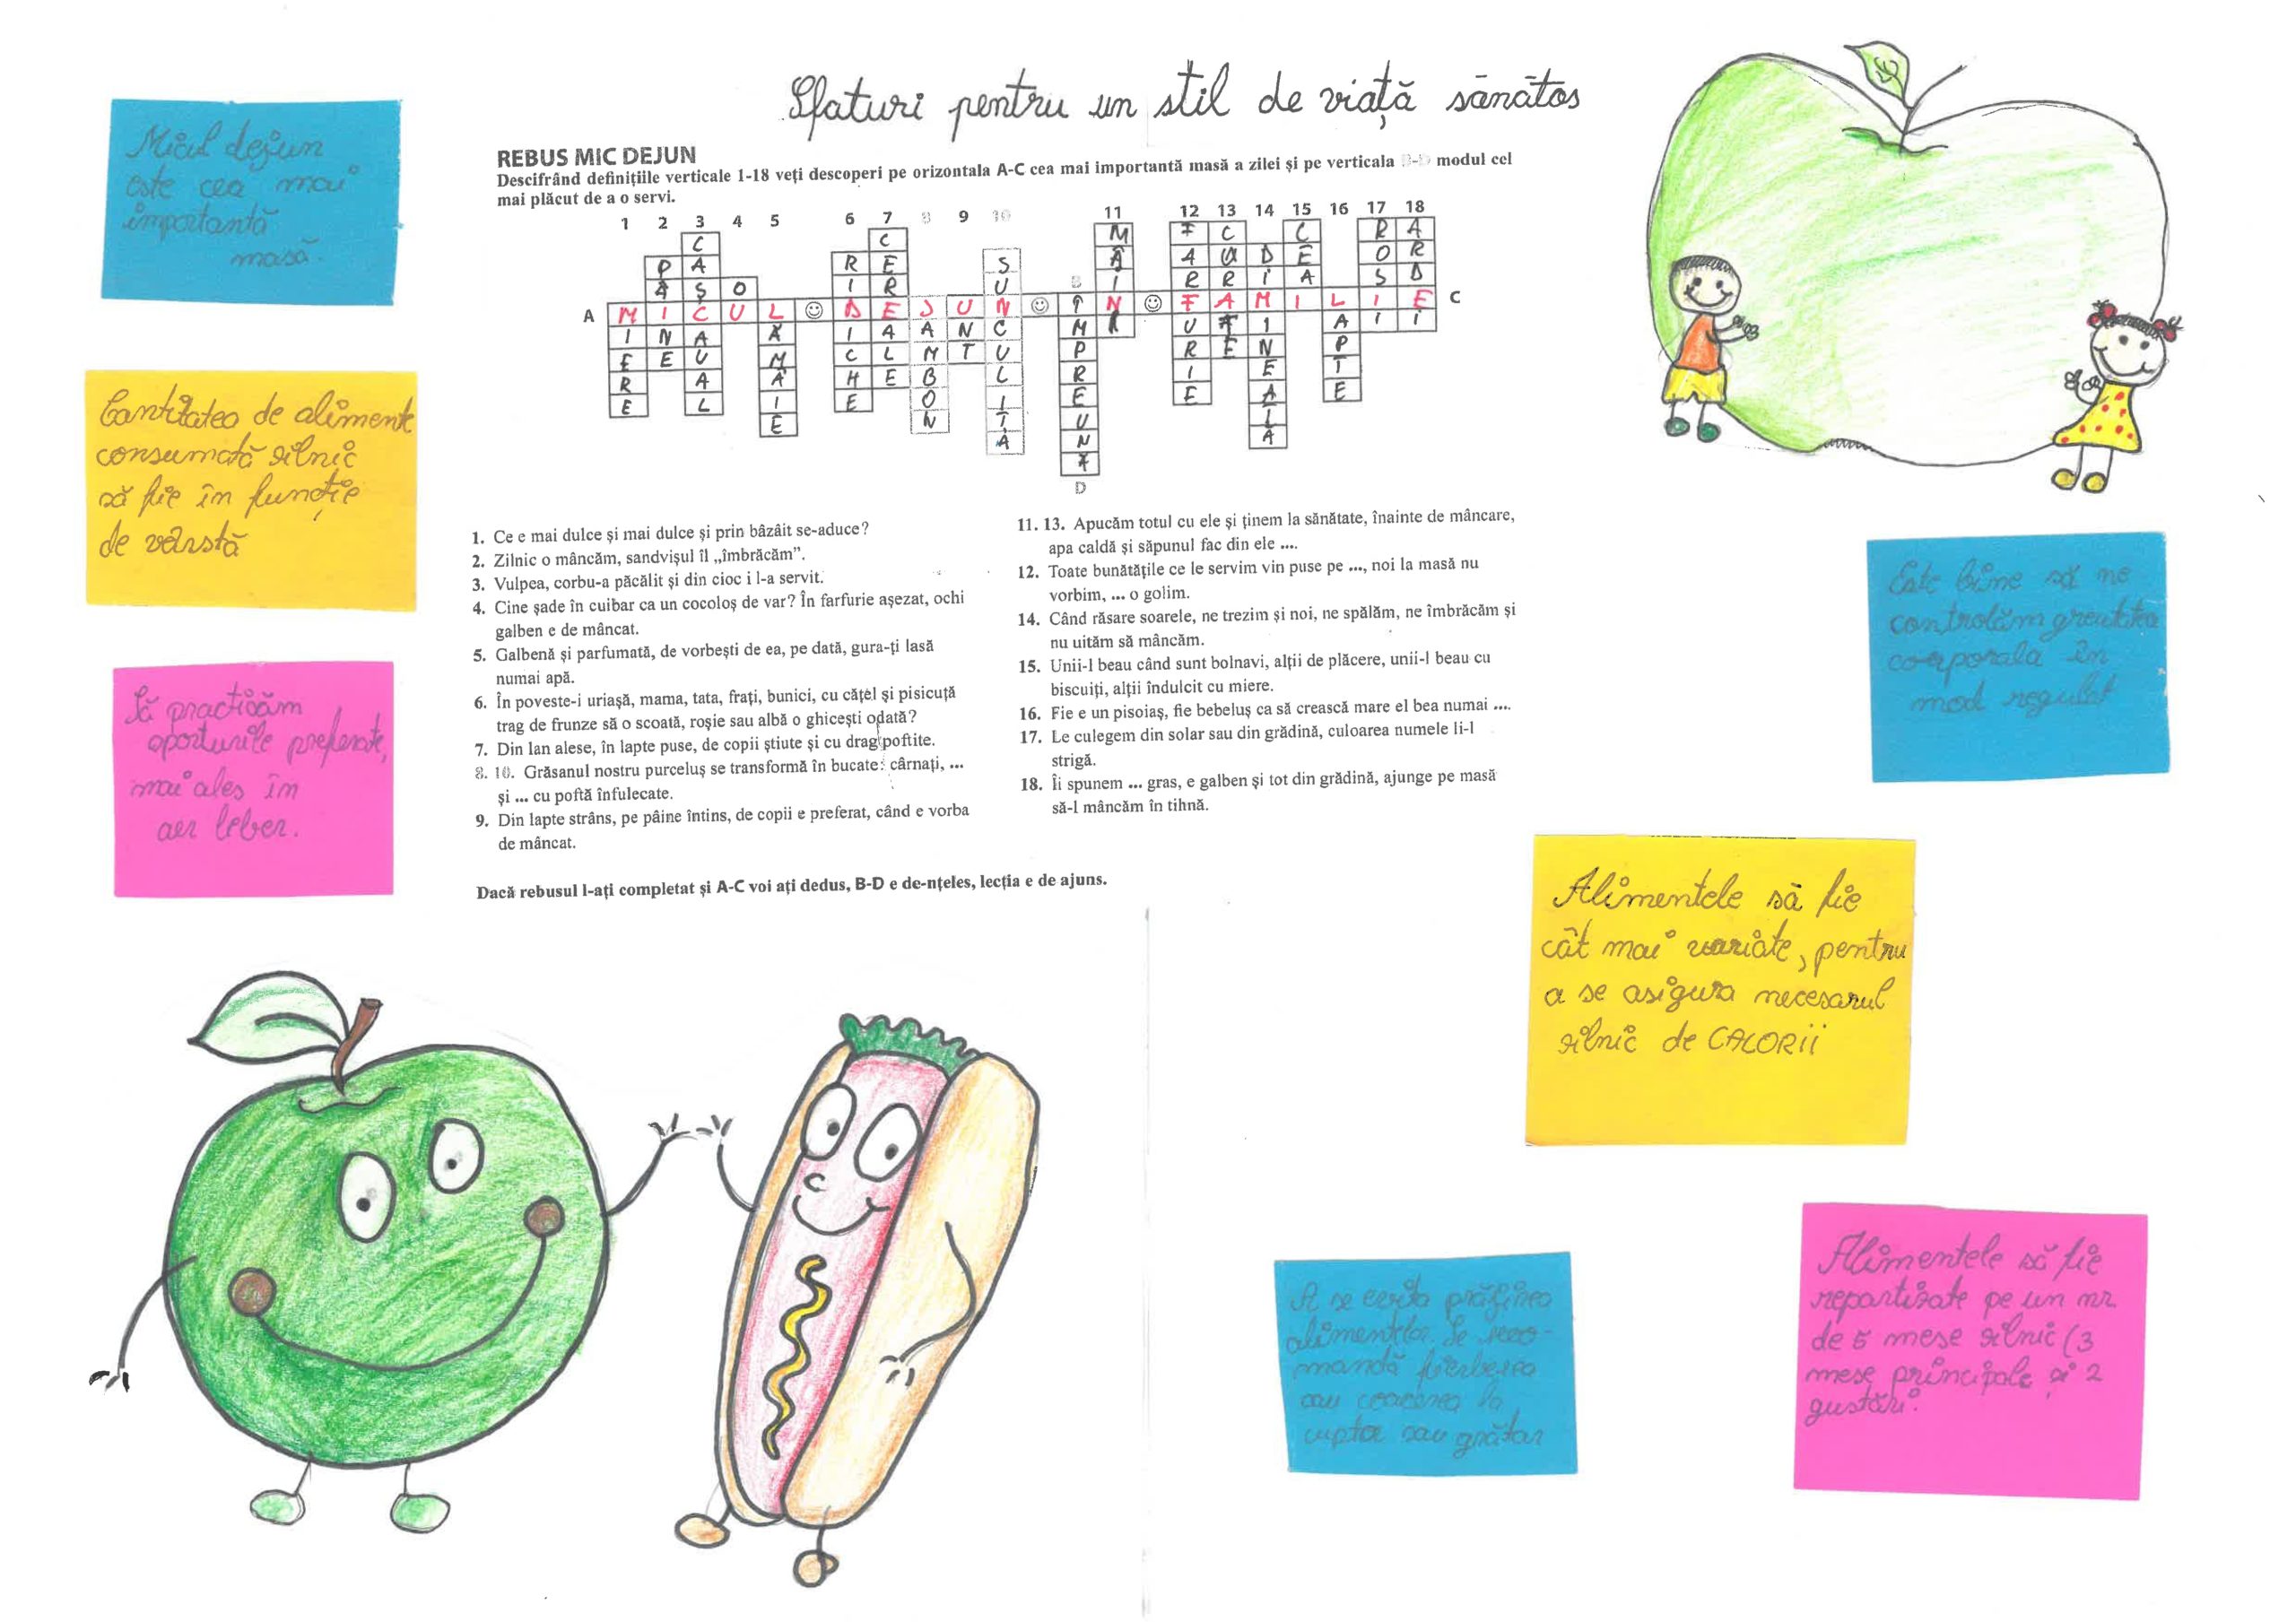 Sfaturi pentru un stil de viață sănătos
REBUS MIC DEJUN
Descifrând definițiile verticale 1-18 veți descoperi pe orizontala A-C cea mai importantă masă a zilei și pe verticala B-D modul cel
mai plăcut de a o servi.
1 2 3 4 5 6 7 8 9 10 11 12 13 14 15 16 17 18
C C M F C C R A
P A R E S Â A U D E O R
A Ș O I R U B I R R I A S D
A M I C U L D E J U N Î N F A M I L I E C
I N A Ă I A A N C M I U T I A I I
E E U M C L M T U P R E N P
R A Â H E B L R I E T
E L I E O I E E A E
E N T U L
Ă N Ă
Ă
D
1. Ce e mai dulce și mai dulce și prin bâzâit se-aduce?
2. Zilnic o mâncăm, sandvișul îl „îmbrăcăm”.
3. Vulpea, corbu-a păcălit și din cioc i l-a servit.
4. Cine șade în cuibar ca un cocoloș de var? În farfurie așezat, ochi
galben e de mâncat.
5. Galbenă și parfumată, de vorbești de ea, pe dată, gura-ți lasă
numai apă.
6. În poveste-i uriașă, mama, tata, frați, bunici, cu cățel și pisicuță
trag de frunze să o scoată, roșie sau albă o ghicești odată?
7. Din lan alese, în lapte puse, de copii știute și cu drag poftite.
8. 10. Grăsanul nostru purceluș se transformă în bucate: cârnați, ...
și ... cu poftă înfulecate.
9. Din lapte strâns, pe pâine întins, de copii e preferat, când e vorba
de mâncat.
11. 13. Apucăm totul cu ele și ținem la sănătate, înainte de mâncare,
apa caldă și săpunul fac din ele ....
12. Toate bunătățile ce le servim vin puse pe ..., noi la masă nu
vorbim, ... o golim.
14. Când răsare soarele, ne trezim și noi, ne spălăm, ne îmbrăcăm și
nu uităm să mâncăm.
15. Unii-l beau când sunt bolnavi, alții de plăcere, unii-l beau cu
biscuiți, alții îndulcit cu miere.
16. Fie e un pisoiaș, fie bebeluș ca să crească mare el bea numai ....
17. Le culegem din solar sau din grădină, culoarea numele li-l
strigă.
18. Îi spunem ... gras, e galben și tot din grădină, ajunge pe masă
să-l mâncăm în tihnă.
Dacă rebusul l-ați completat și A-C voi ați dedus, B-D e de-nțeles, lecția e de ajuns.
Micul dejun
este cea mai
importantă
masă.
Cantitatea de alimente
consumată zilnic
să fie în funcție
de vârstă
Să practicăm
sporturile preferate,
mai ales în
aer leber.
Este bine să ne
controlăm greutatea
corporala în
mod regulat
Alimentele să fie
cât mai variate, pentru
a se asigura necesarul
zilnic de CALORII
A se evita prăjirea
alimentelor. Se reco-
mandă fierberea
sau coacerea la
cuptor sau grătar
Alimentele să fie
repartizate pe un nr.
de 5 mese zilnic (3
mese principale și 2
gustări.